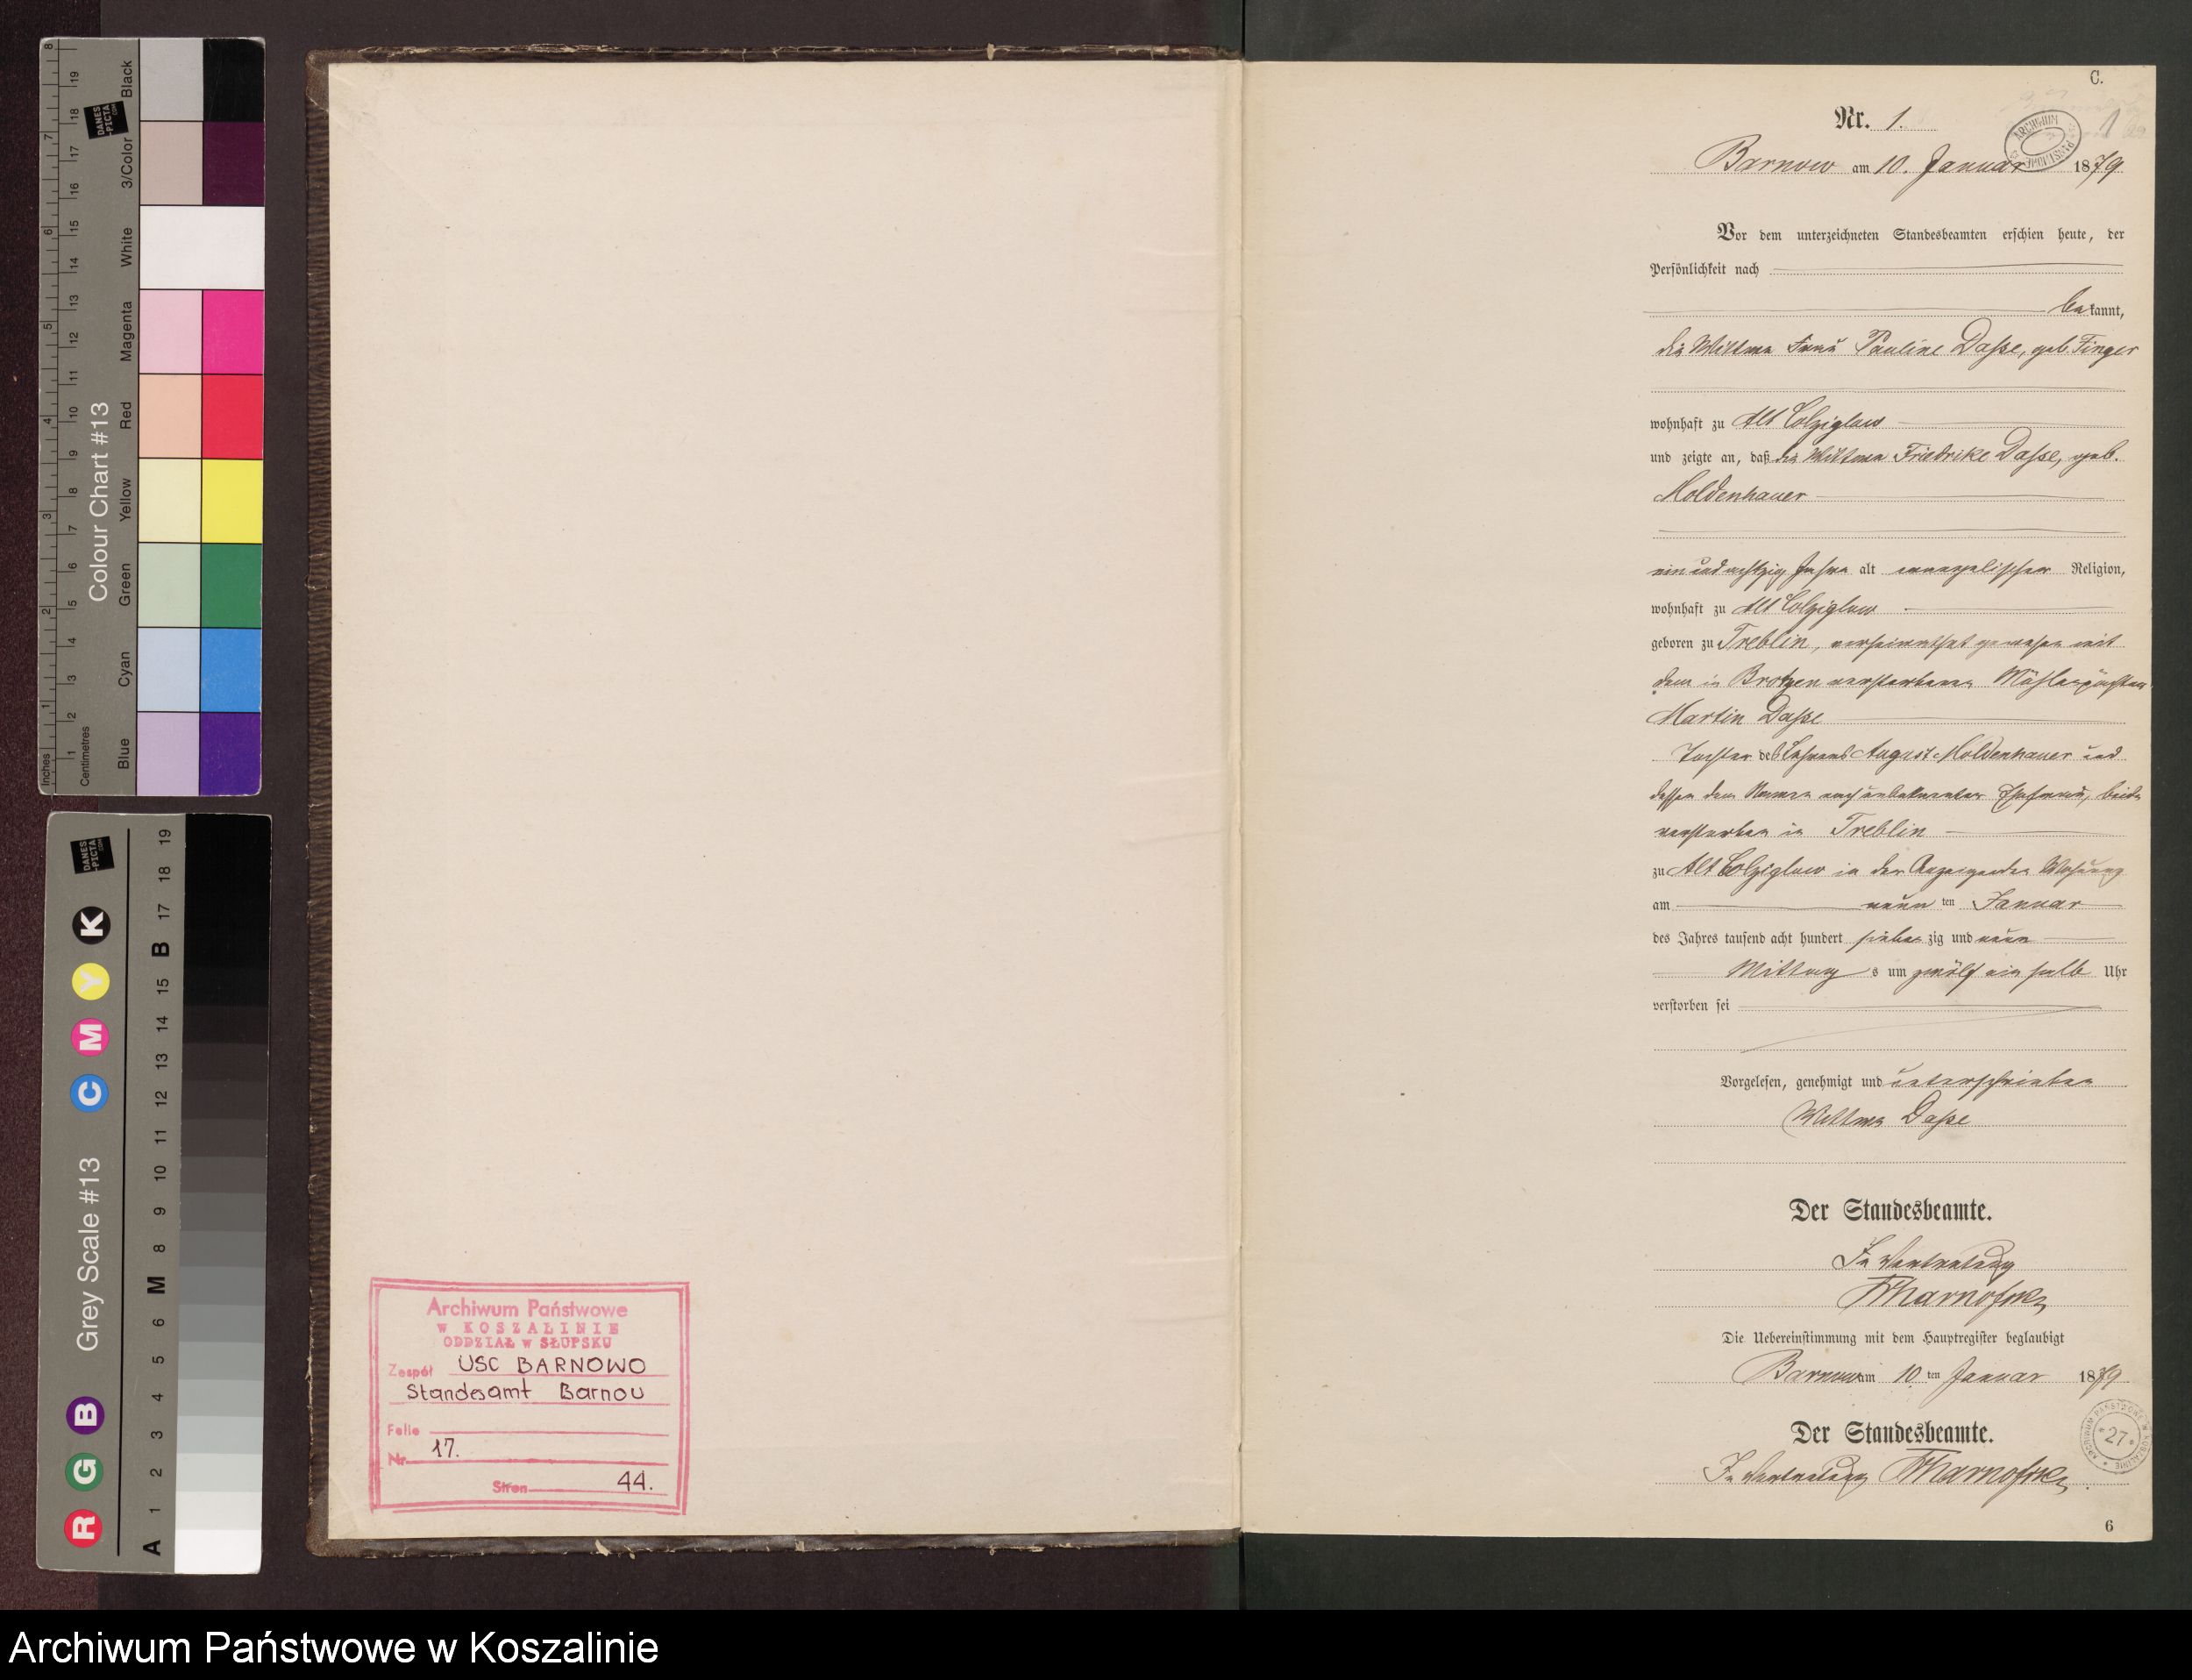 Inches
Centimetres
Colour Chart #13
Blue
Cyan
Green
Yellow
Red
Magenta
White
3/Color
Black
DANES
-PICTA
.COM
Grey Scale #13
R G B
C M Y K
A 1 2 3 4 5 6 M 8 9 10 11 12 13 14 15 B 17 18 19
Archiwum Państwowe
w KOSZALINIE
ODDZIAŁ w SŁUPSKU
Zespół USC BARNOWO
Standesamt Barnow
Nr 17.
Stron 44.
C.
Nr. 1.
1
Barnow am 10. Januar 1879
Vor dem unterzeichneten Standesbeamten erschien heute, der
Persönlichkeit nach
bekannt,
die Wittwe Frau Pauline Daße, geb. Finger
wohnhaft zu Alt Colziglow
und zeigte an, daß die Wittwe Friedrike Daße, geb.
Moldenhauer
ein und achtzig Jahre alt evangelischer Religion,
wohnhaft zu Alt Colziglow
geboren zu Treblin, verheirathet gewesen mit
dem in Brotzen verstorbenen Mühlenpächter
Martin Daße
Tochter des August Moldenhauer und
dessen dem Namen nach unbekannten Ehefrau, beide
verstorben in Treblin
zu Alt Colziglow in der Anzeigenden Wohnung
am neun ten Januar
des Jahres tausend acht hundert sieben zig und neun
Mittag s um zwölf ein halb Uhr
verstorben sei
Vorgelesen, genehmigt und unterschrieben
Wittwe Daße
Der Standesbeamte.
In Vertretung
Die Uebereinstimmung mit dem Hauptregister beglaubigt
Barnow am 10 ten Januar 1879
Der Standesbeamte.
In Vertretung
27
6
Archiwum Państwowe w Koszalinie